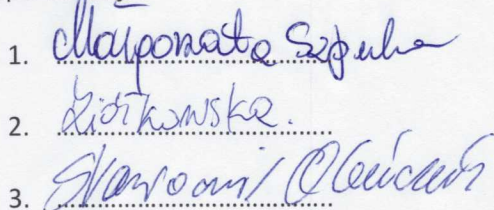 1. Małgorzata Szpulu
2. Ziółkowska.
3. Sławomir